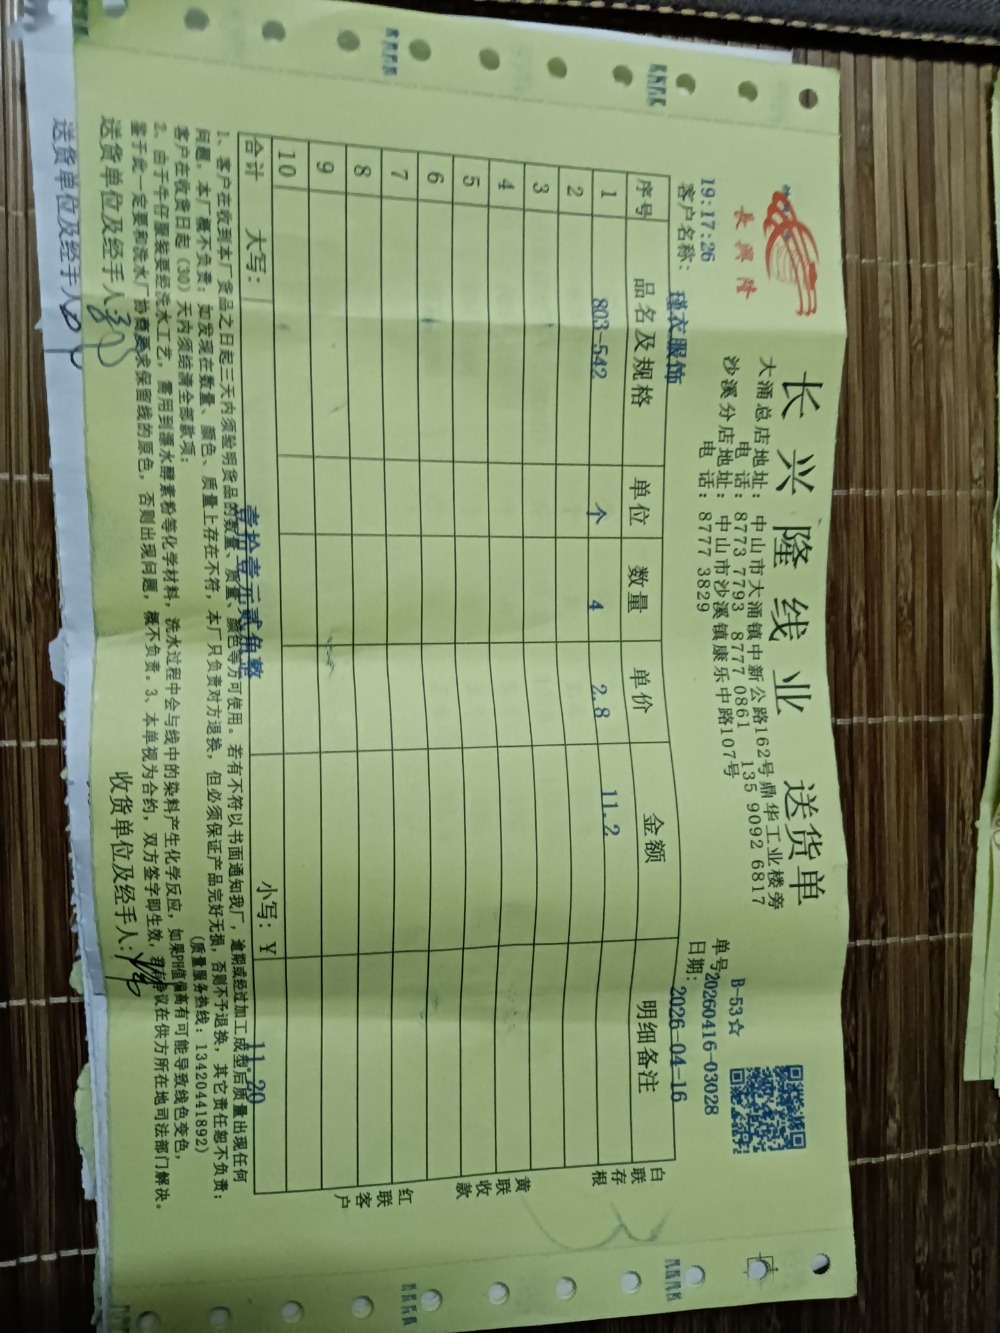 長興隆
长兴隆线业 送货单
大涌总店地址: 中山市大涌镇中新公路162号鼎华工业楼旁
电 话: 8773 7793 8777 0861 135 9092 6817
沙溪分店地址: 中山市沙溪镇康乐中路107号
电 话: 8777 3829
B-53☆
单号20260416-03028
日期: 2026-04-16
19:17:26
客户名称: 瑾衣服饰
序号 品名及规格 单位 数量 单价 金额 明细备注
1 803-542 个 4 2.8 11.2
2
3
4
5
6
7
8
9
10
合计 大写: 壹拾壹元贰角整 小写: ¥ 11.20
白联存根
黄联收款
红联客户
1、客户在收到本厂货品之日起三天内须验明货品的数量、质量、颜色等方可使用。若有不符以书面通知我厂, 逾期或经过加工成型后质量出现任何
问题, 本厂概不负责; 如发现在数量、颜色、质量上存在不符, 本厂只负责对方退换, 但必须保证产品完好无损, 否则不予退换, 其它责任恕不负责;
客户在收货日起 (30) 天内须结清全部款项; (质量服务热线: 13420441892)
2、由于牛仔服装要经洗水工艺, 需用到漂水酵素粉等化学材料, 洗水过程中会与线中的染料产生化学反应, 如果PH值偏高有可能导致线色变色,
鉴于此一定要和洗水厂协商要求保留线的原色, 否则出现问题, 概不负责。3、本单视为合约, 双方签字即生效, 若有争议在供方所在地司法部门解决。
送货单位及经手人: 收货单位及经手人:
送货单位及经手人